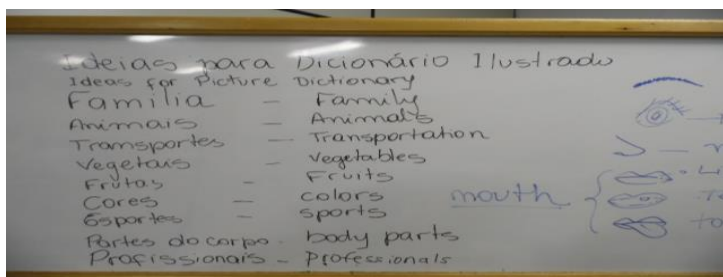 Ideias para Dicionário Ilustrado
Ideas for Picture Dictionary
Familia - Family
Animais - Animals
Transportes - Transportation
Vegetais - Vegetables
Frutas - Fruits
Cores - colors
Esportes - sports
Partes do corpo - body parts
Profissionais - Professionals
mouth